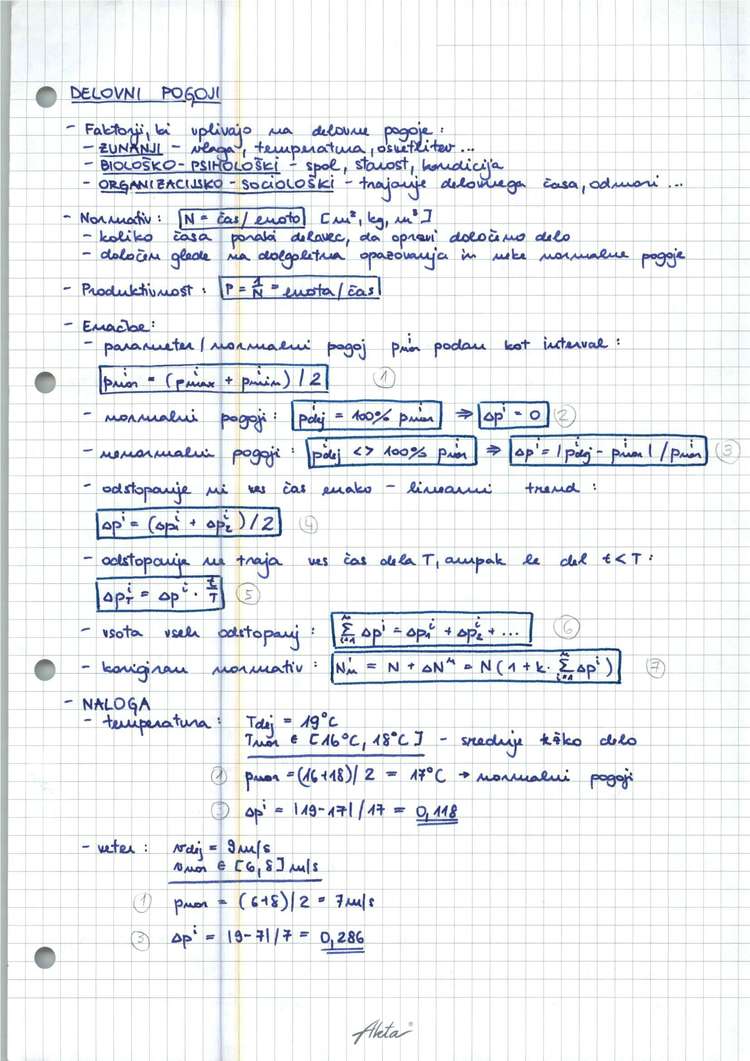 DELOVNI POGOJI
- Faktorji, ki vplivajo na delovne pogoje:
- ZUNANJI - vlaga, temperatura, osvetlitev...
- BIOLOŠKO-PSIHOLOŠKI - spol, starost, kondicija
- ORGANIZACIJSKO-SOCIOLOŠKI - trajanje delovnega časa, odmori...
- Normativ: N = čas/enoto [m², kg, m³]
- koliko časa porabi delavec, da opravi določeno delo
- določen glede na dolgoletna opazovanja in neke normalne pogoje
- Produktivnost: P = 1/N = enota/čas
- Enačbe:
- parameter/normalni pogoj pⁱnor podan kot interval:
pⁱnor = (pⁱmax + pⁱmin)/2 ①
- normalni pogoji: pⁱdej = 100% pⁱnor ⇒ Δpⁱ = 0 ②
- nenormalni pogoji: pⁱdej <> 100% pⁱnor ⇒ Δpⁱ = |pⁱdej - pⁱnor|/pⁱnor ③
- odstopanje ni ves čas enako - linearni trend:
Δpⁱ = (Δp₁ⁱ + Δp₂ⁱ)/2 ④
- odstopanje ne traja ves čas dela T, ampak le del t<T:
Δp_Tⁱ = Δpⁱ · t/T ⑤
- vsota vseh odstopanj: Σⁿᵢ₌₁ Δpⁱ = Δp₁ⁱ + Δp₂ⁱ + ... ⑥
- korigiran normativ: Nₙ' = N + ΔNⁿ = N(1 + k · Σⁿᵢ₌₁ Δpⁱ) ⑦
- NALOGA
- temperatura: Tdej = 19°C
Tnor ∈ [16°C, 18°C] - srednje težko delo
① pnor = (16+18)/2 = 17°C → normalni pogoji
③ Δpⁱ = |19-17|/17 = 0,118
- veter: vdej = 9m/s
vnor ∈ [6,8] m/s
① pnor = (6+8)/2 = 7m/s
③ Δpⁱ = |9-7|/7 = 0,286
Akta